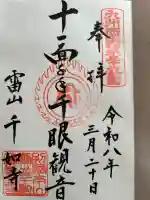 奉拝
令和八年
三月二十日
十一面千手千眼観音
雷山 千如寺